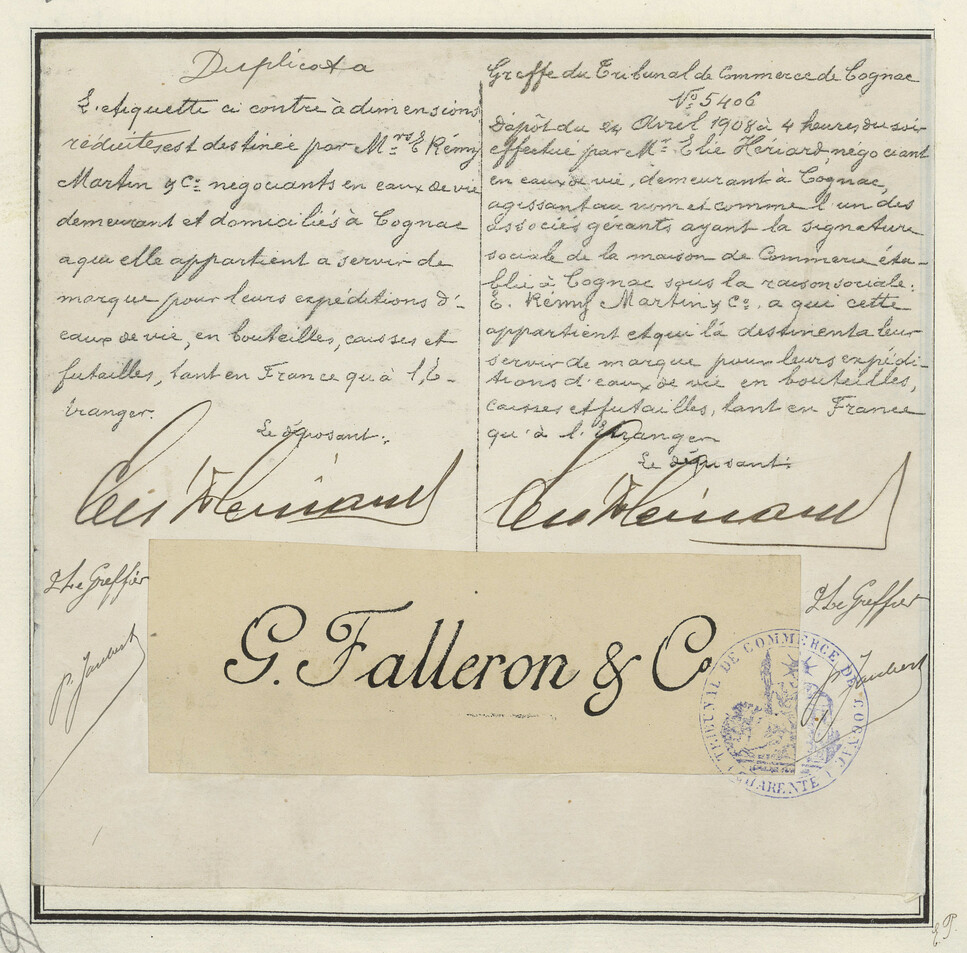 Duplicata
L'etiquette ci contre à dimensions
réduites est destinée par Mrs E Rémy
Martin & Cie négociants en eaux de vie
demeurant et domiciliés à Cognac
a qui elle appartient a servir de
marque pour leurs expéditions d'-
eaux de vie, en bouteilles, caisses et
futailles, tant en France qu'à l'É-
tranger.
Le déposant:
Le Greffier
p. Jaubert
Greffe du Tribunal de Commerce de Cognac
No 5406
Dépôt du 24 Avril 1908 à 4 heures du soir
effectué par Mr Elie Hériard, négociant
en eaux de vie, demeurant à Cognac,
agissant au nom et comme l'un des
associés gérants ayant la signature
sociale de la maison de Commerce éta-
blie à Cognac sous la raison sociale:
E. Rémy Martin & Co. a qui cette
appartient et qui la destinent a leur
servir de marque pour leurs expédi-
tions d'eaux de vie en bouteilles,
caisses et futailles, tant en France
qu'à l'Étranger
Le déposant:
Le Greffier
p. Jaubert
G. Falleron & Co
TRIBUNAL DE COMMERCE DE COGNAC
(CHARENTE)
E. P.